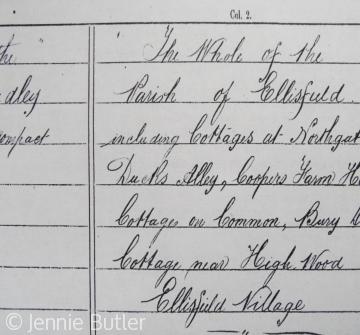 Col. 2.
the
The Whole of the
dley
Parish of Ellisfield
compact
including Cottages at Northgat
Ducks Alley, Coopers Farm H
Cottages on Common, Bury
Cottage near High Wood
Ellisfield Village
© Jennie Butler